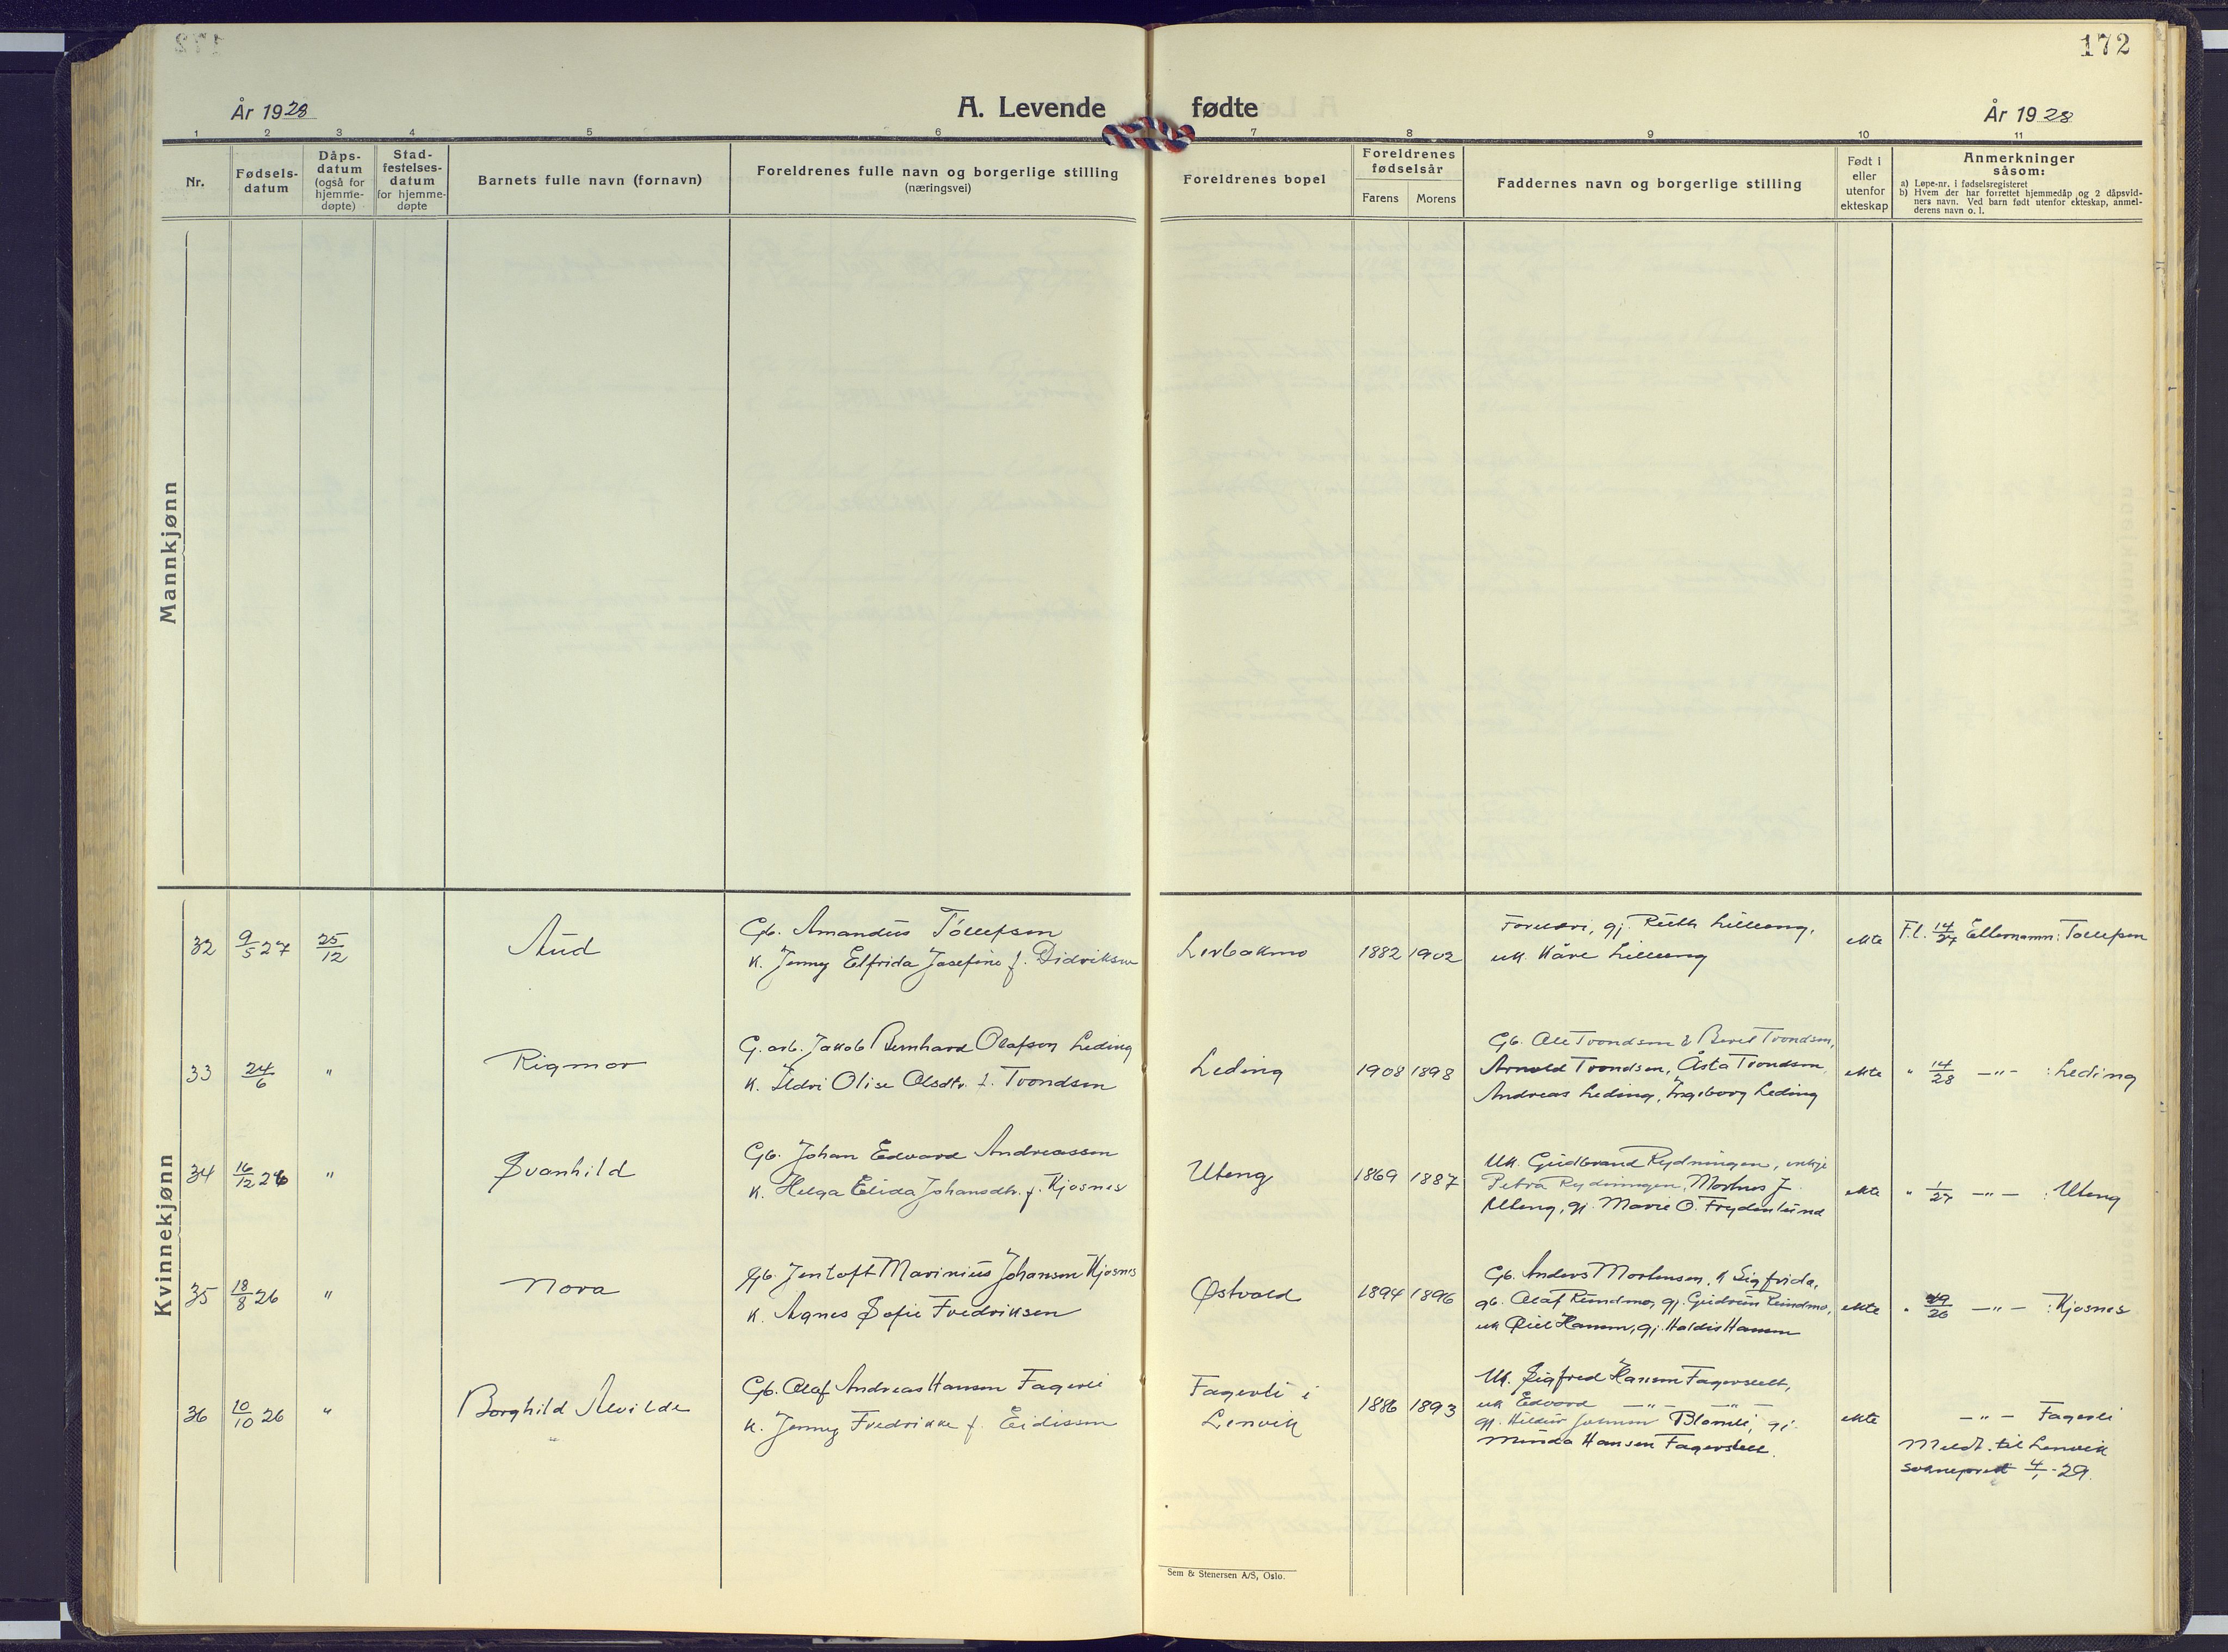 172
År 1928
A. Levende fødte
År 1928
1 2 3 4 5 6 7 8 9 10 11
Nr.
Fødsels-
datum
Dåps-
datum
(også for
hjemme-
døpte)
Stad-
festelses-
datum
for hjemme-
døpte
Barnets fulle navn (fornavn)
Foreldrenes fulle navn og borgerlige stilling
(næringsvei)
Foreldrenes bopel
Foreldrenes
fødselsår
Farens Morens
Faddernes navn og borgerlige stilling
Født i
eller
utenfor
ekteskap
Anmerkninger
såsom:
a) Løpe-nr. i fødselsregisteret
b) Hvem der har forrettet hjemmedåp og 2 dåpsvid-
ners navn. Ved barn født utenfor ekteskap, anmel-
derens navn o. l.
Mannkjønn
Kvinnekjønn
32 9/5 27 25/12 Aud
Gb. Amandus Tollefsen
K. Jenny Elfrida Josefine f. Didriksen
1882 1902
Foreldri, gj. Ruth Lilleeng,
uk. Kåre Lilleeng
ekte
F.l. 14/27 Etternamn: Tollefsen
33 24/6 " Rigmor
G. arb. Jakob Bernhard Olafsen Leding
K. Ildri Olise Olsdtr. f. Trondsen
Leding
1908 1898
Gb. Ole Trondsen & Beret Trondsen,
Arnold Trondsen, Åsta Trondsen,
Andreas Leding, Ingeborg Leding
ekte
" 14/28 —"— : Leding
34 16/12 26 " Svanhild
Gb. Johan Edvard Andreassen
K. Helga Elida Johansdtr. f. Kjosnes
Uteng
1869 1887
Uk. Gudbrand Rydningen,
Petra Rydningen, Morthus J.
Uteng, gj. Marie O. Frydenlund
ekte
" 1/27 —"— : Uteng
35 18/8 26 " Nora
Gb. Jentoft Marinius Johansen Kjosnes
K. Agnes Sofie Fredriksen
Østvold
1894 1896
Gb. Anders Mortensen, K Sigfrida,
gb. Olaf Rundmo, gj. Gudrun Rundmo,
uk Hansen, gj. Haldis Hansen
ekte
" 49/26 —"— : Kjosnes
36 10/10 26 " Borghild Alvilde
Gb. Olaf Andreas Hansen Fagerli
K. Jenny Fredrikke f. Eidissen
Fagerli i
Lenvik
1886 1893
Uk. Sigfred Hansen Fagerslett,
uk Edvard —"— —"—
gj. Hildur Johnsen Blomli, gj.
Minda Hansen Fagerslett.
ekte
—"— Fagerli
Meldt til Lenvik
sokneprest 4/1-29.
Sem & Stenersen A/S, Oslo.